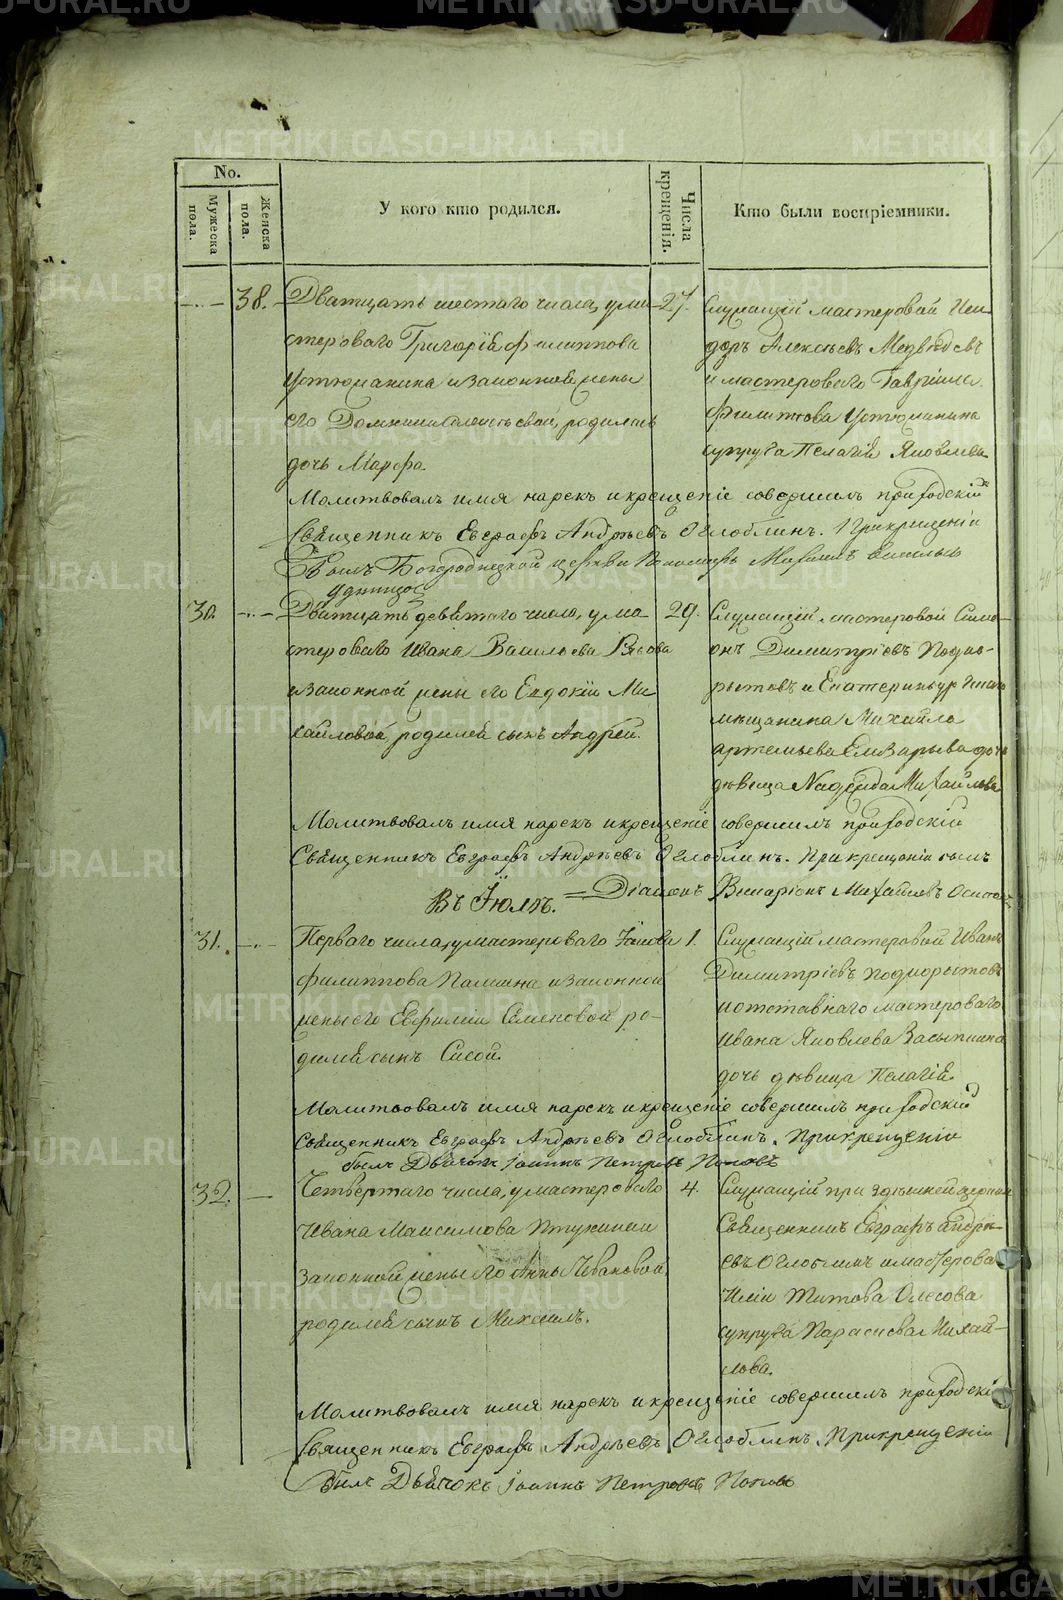 No.
Мужеска пола.
Женска пола.
У кого кто родился.
Числа крещенія.
Кто были воспріемники.
38. Дватцать шестаго числа, у ма- 27.
стероваго Григорія Филиппова
Устюжанина и законной жены
его Домники родилась
дочь Марфа.
Служащій мастеровой Иси-
доръ Алексѣевъ Медвѣдевъ
и мастероваго Гавріила
Филиппова Устюжанина
супруга Пелагія Яковлева
Молитвовалъ имя нарекъ и крещеніе совершилъ приходскій
Священникъ Евграфъ Андрѣевъ Оглоблинъ. При крещеніи
былъ Богородицкой церкви Пономарь Михаилъ
30. Дватцать девятаго числа, у ма- 29.
стероваго Ивана Васильева Рясова
и законной жены его Евдокіи Ми-
хайловой, родился сынъ Андрей.
Служащій мастеровой Симе-
онъ Димитріевъ Подко-
рытовъ и Екатеринбургскаго
мѣщанина Михайла
Артемьева дочь
дѣвица Надежда Михайлова
Молитвовалъ имя нарекъ и крещеніе совершилъ приходскій
Священникъ Евграфъ Андрѣевъ Оглоблинъ. При крещеніи былъ
Діаконъ Виссаріонъ Михайловъ
Въ Іюлѣ.
31. Перваго числа, у мастероваго Іакова 1.
Филиппова и законной
жены его Евфиміи Семеновой ро-
дился сынъ Сисой.
Служащій мастеровой Иванъ
Димитріевъ Подкорытовъ
и отставнаго мастероваго
Ивана Яковлева Засыпкина
дочь дѣвица Пелагія
Молитвовалъ имя нарекъ и крещеніе совершилъ приходскій
Священникъ Евграфъ Андрѣевъ Оглоблинъ. При крещеніи
былъ Дьячокъ Іоаннъ Петровъ Поповъ
32. Четвертаго числа, у мастероваго 4.
Ивана Максимова Птухина и
законной жены его Анны Ивановой,
родился сынъ Михаилъ.
Служащій при здѣшней церкви
Священникъ Евграфъ Андрѣ-
евъ Оглоблинъ и мастероваго
Иліи Титова Олесова
супруга Параскева Михай-
лова.
Молитвовалъ имя нарекъ и крещеніе совершилъ приходскій
Священникъ Евграфъ Андрѣевъ Оглоблинъ. При крещеніи
былъ Дьячокъ Іоаннъ Петровъ Поповъ
METRIKI.GASO-URAL.RU